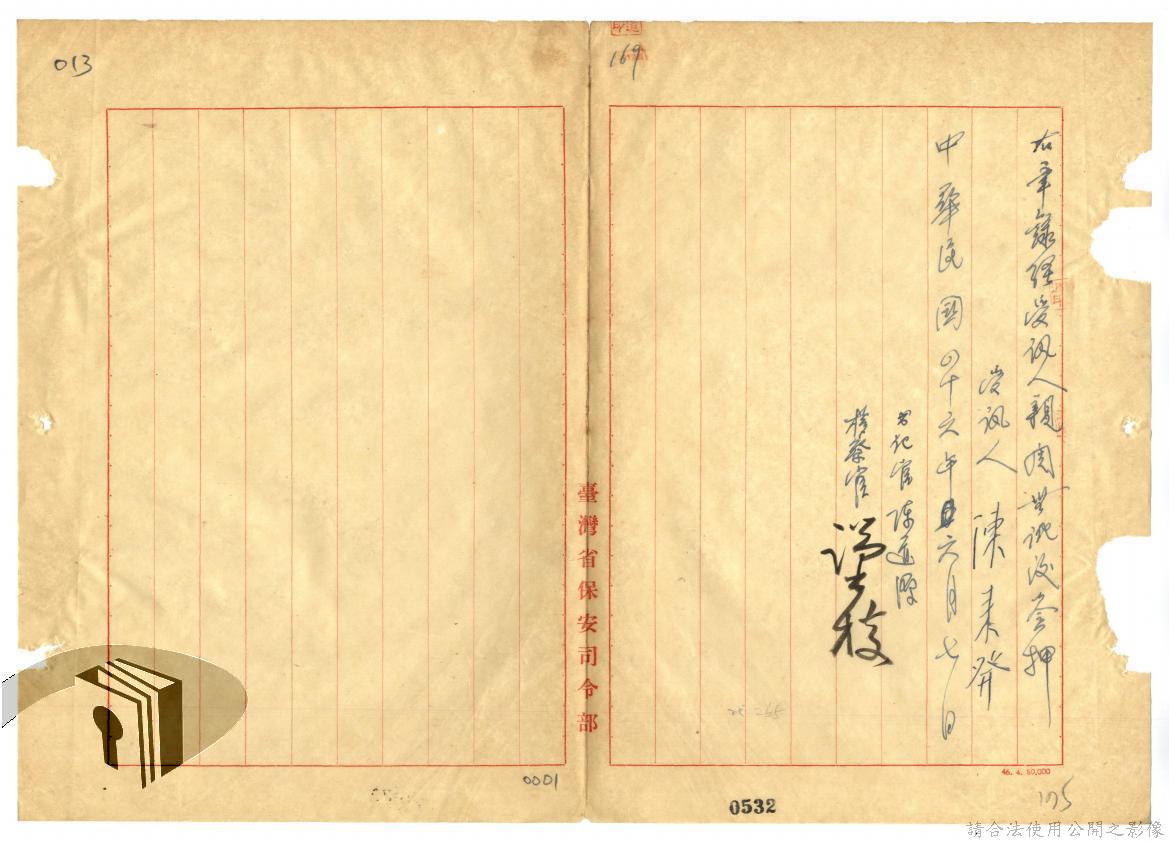 013
169
右筆錄經受訊人親閱無訛後簽押
受訊人 陳来發
中華民國四十六年六月七日
書記官 陳道源
檢察官
臺灣省保安司令部
46. 4. 50,000
0001
0532
175
請合法使用公開之影像